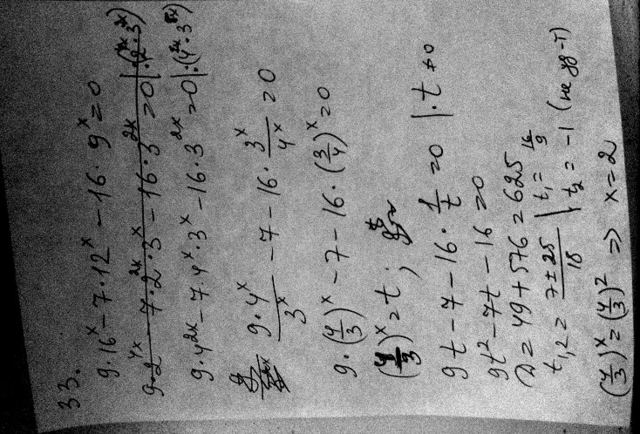 33.
9·16^x - 7·12^x - 16·9^x = 0
9·2^{4x} - 7·2^{2x}·3^x - 16·3^{2x} = 0 |:(2^{2x}·3^x)
9·4^{2x} - 7·4^x·3^x - 16·3^{2x} = 0 |:(4^x·3^x)
9·4^x/3^x - 7 - 16·3^x/4^x = 0
9·(4/3)^x - 7 - 16·(3/4)^x = 0
(4/3)^x = t;
9t - 7 - 16·1/t = 0 |·t ≠ 0
9t² - 7t - 16 = 0
D = 49 + 576 = 625
t_{1,2} = (7 ± 25)/18 | t_1 = 16/9
t_2 = -1 (не уд-т)
(4/3)^x = (4/3)^2 => x = 2